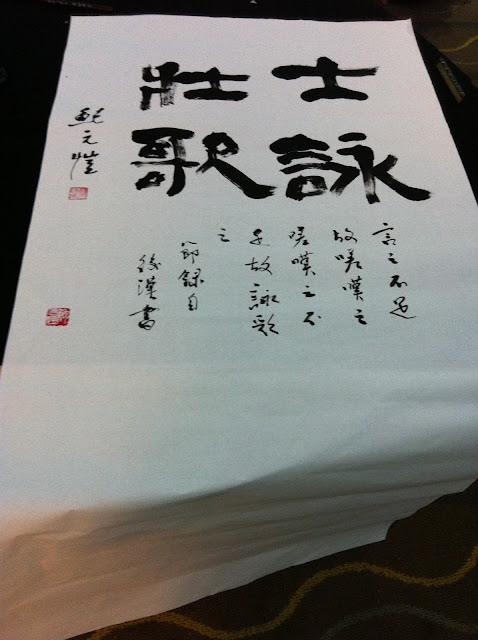 士詠
壯歌
言之不足
故嗟嘆之
嗟嘆之不
足故詠歌
之
節錄自
後漢書
鮑元愷